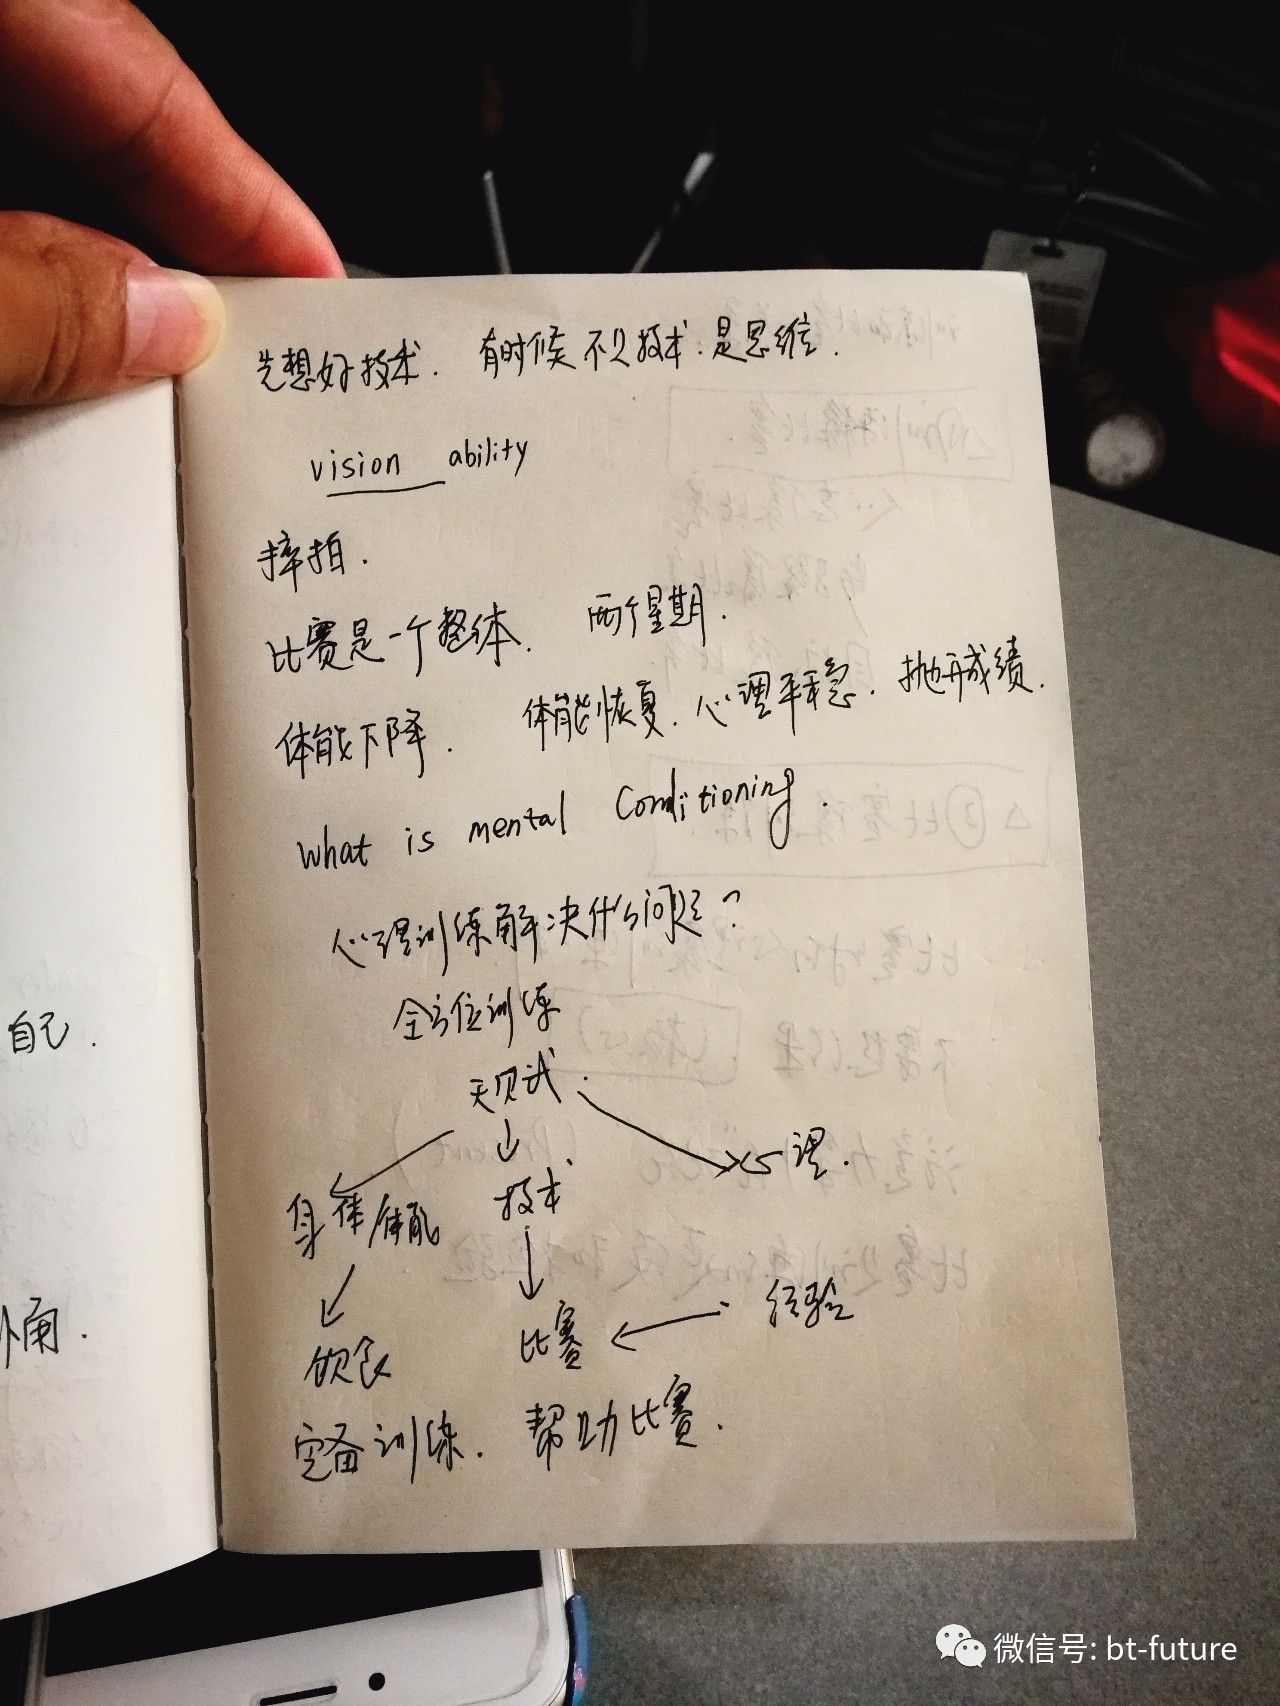 先想好技术. 有时候不只技术.是思维.
vision ability
摔拍.
比赛是一个整体. 两个星期.
体能下降. 体能恢复.心理平稳.抛开成绩.
What is mental Conditioning.
心理训练解决什么问题?
全方位训练
天贝式.
心理.
身体体能 技术
比赛 经验
饮食
定备训练. 帮助比赛.
自己.
桶.
微信号: bt-future